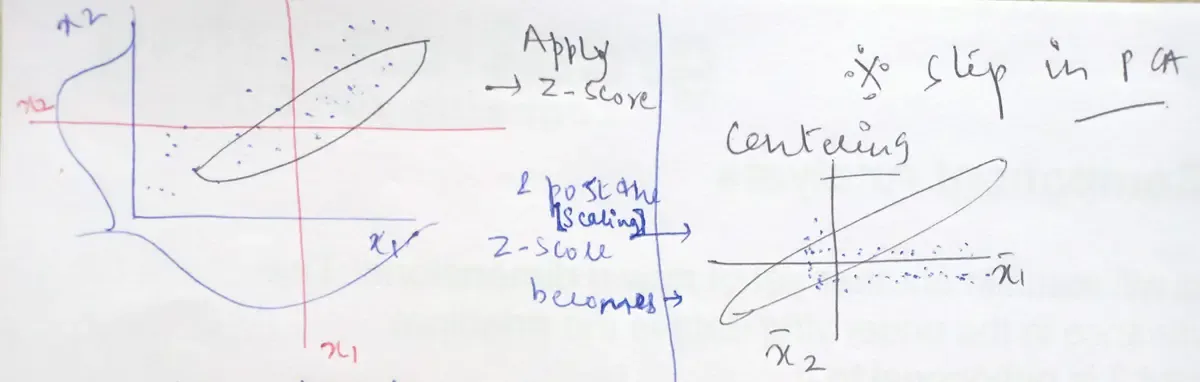 x2
x2
x1
x1
Apply
→ Z-Score
& post the
[Scaling]
Z-Score
becomes
Step in PCA
Centering
x̄1
x̄2